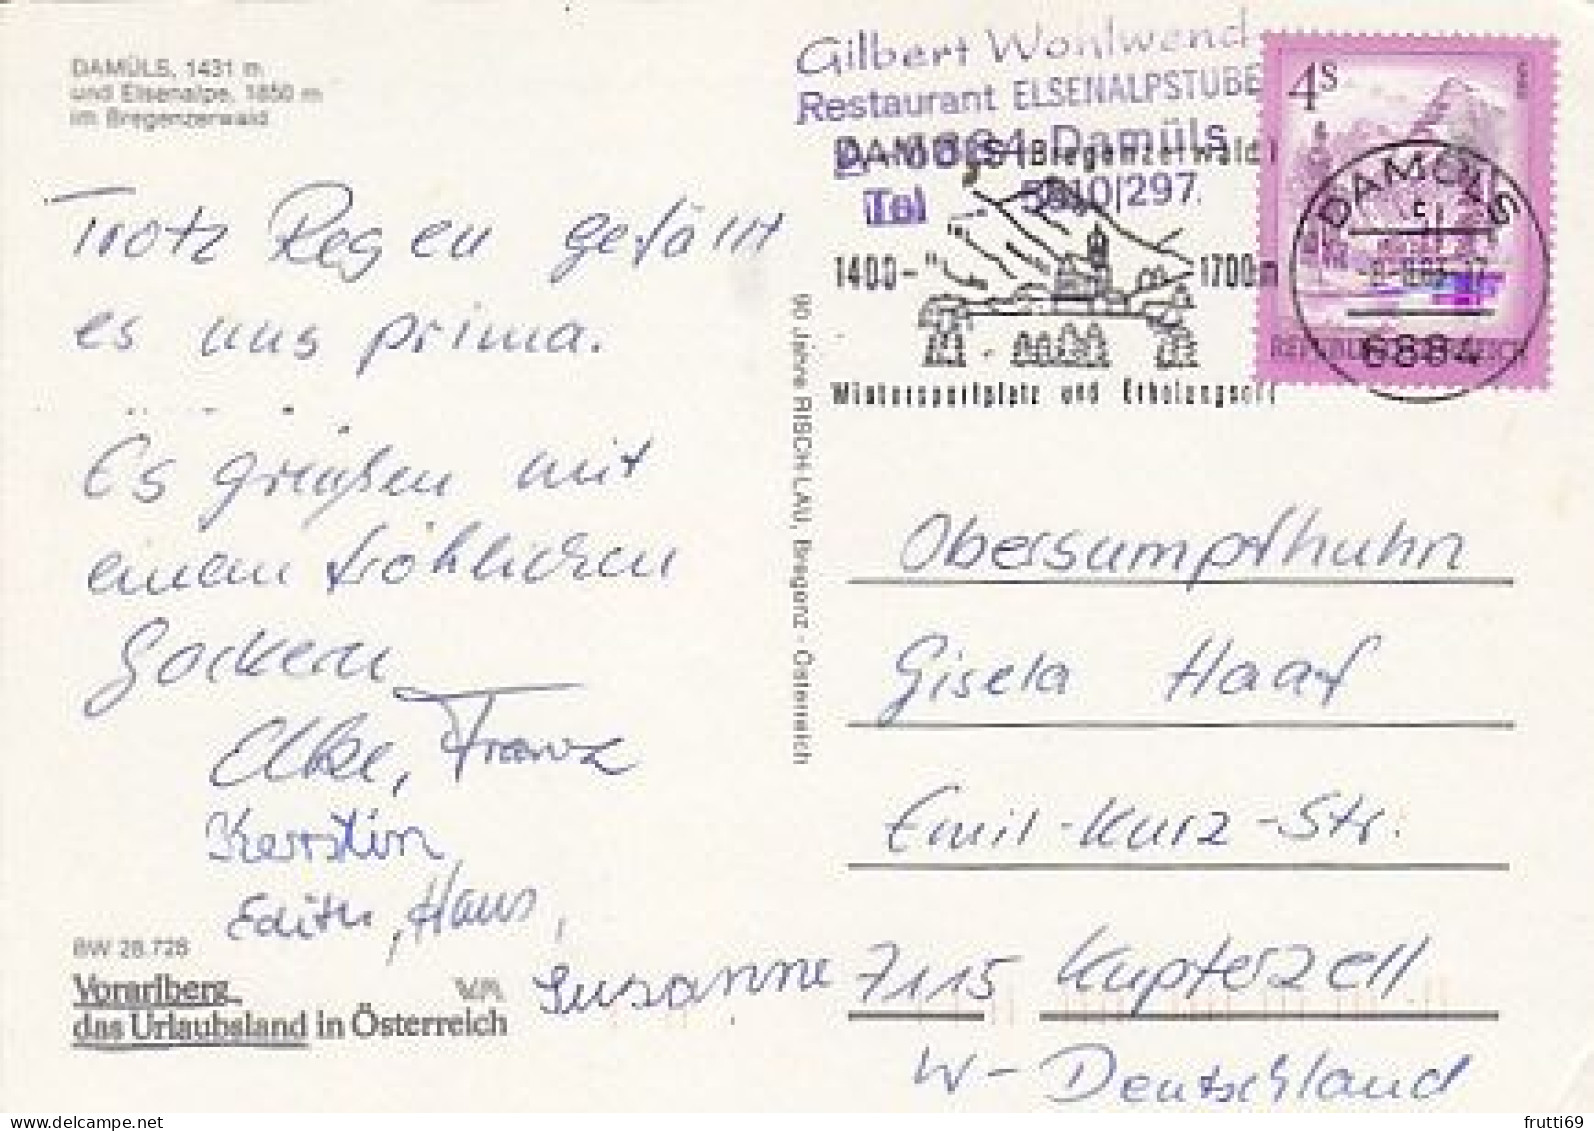 DAMÜLS, 1431 m
und Elsenalpe, 1850 m
im Bregenzerwald
Trotz Regen gefällt
es uns prima.
Es grüßen mit
einem fröhlichen
Gockern
Elke, Franz
Kerstin,
Edith, Hans,
Susanne
BW 28.728
Vorarlberg
das Urlaubsland in Österreich
VA
90 Jahre RISCH-LAU, Bregenz - Österreich
Gilbert Wohlwend
Restaurant ELSENALPSTUBE
A-6884 Damüls
Tel 5510/297
DAMÜLS (Bregenzerwald)
1400- 1700m
Wintersportplatz und Erholungsort
4S
REPUBLIK ÖSTERREICH
DAMÜLS
c
6884
Obersumpfhuhn
Gisela Haaf
Emil-Kurz-Str.
7115 Kupferzell
W-Deutschland
frutti69